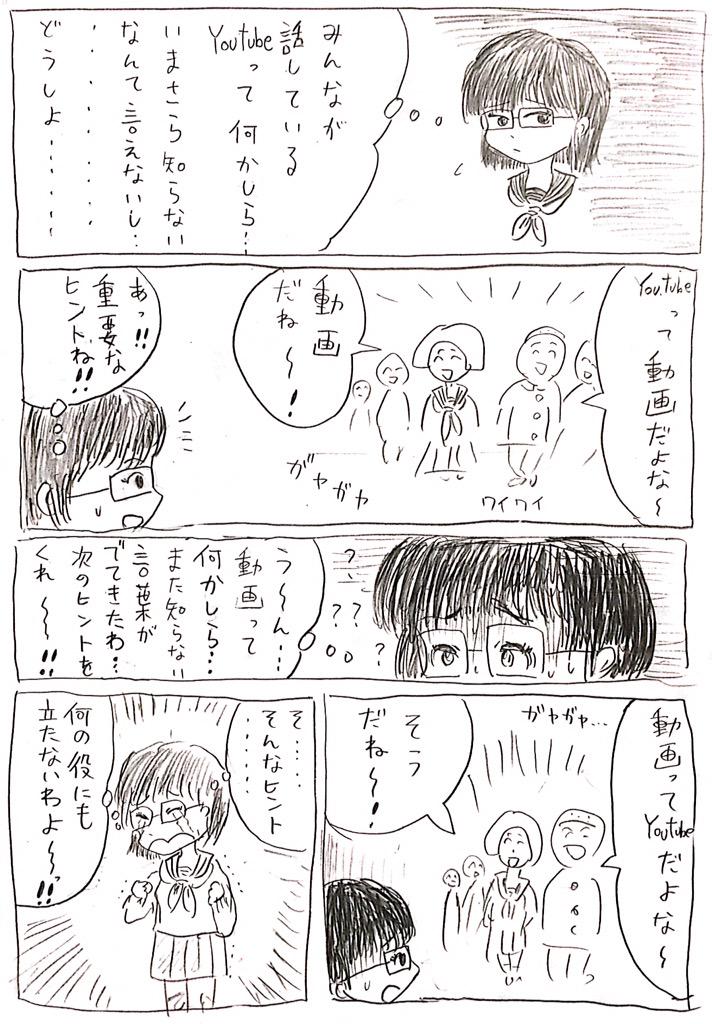 みんなが
話している
Youtubeって何かしら…
いまさら知らない
なんて言えないし…
・・・・・・・
どうしよ………
Youtubeって動画だよな〜
動画
だね〜！
あっ!!
重要な
ヒントね!!
ガヤガヤ
ワイワイ
?
??
?
う〜ん…
動画って
何かしら…
また知らない
言葉が
でてきたわ…
次のヒントを
くれ〜〜!!
動画ってYoutubeだよな〜
ガヤガヤ…
そう
だね〜！
そ……
そんなヒント
・・・・・
何の役にも
立たないわよ〜っ!!